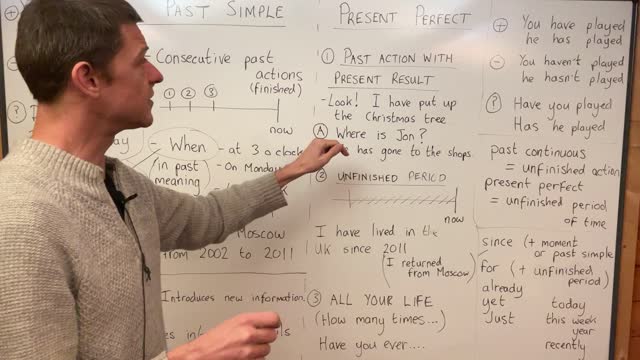 PAST SIMPLE
Consecutive past
actions
(finished)
1 2 3
now
?
- When
- at 3 o clock
in past
meaning
- On Monday
Moscow
from 2002 to 2011
Introduces new information
PRESENT PERFECT
① PAST ACTION WITH
PRESENT RESULT
- Look! I have put up
the Christmas tree
Ⓐ Where is Jon?
has gone to the shops
② UNFINISHED PERIOD
now
I have lived in the
UK since 2011
(I returned
from Moscow)
③ ALL YOUR LIFE
(How many times...)
Have you ever....
+ You have played
he has played
- You haven't played
he hasn't played
? Have you played
Has he played
past continuous
= unfinished action
present perfect
= unfinished period
of time
since (+ moment
or past simple
for (+ unfinished
period)
already
yet
Just
today
this week
year
recently